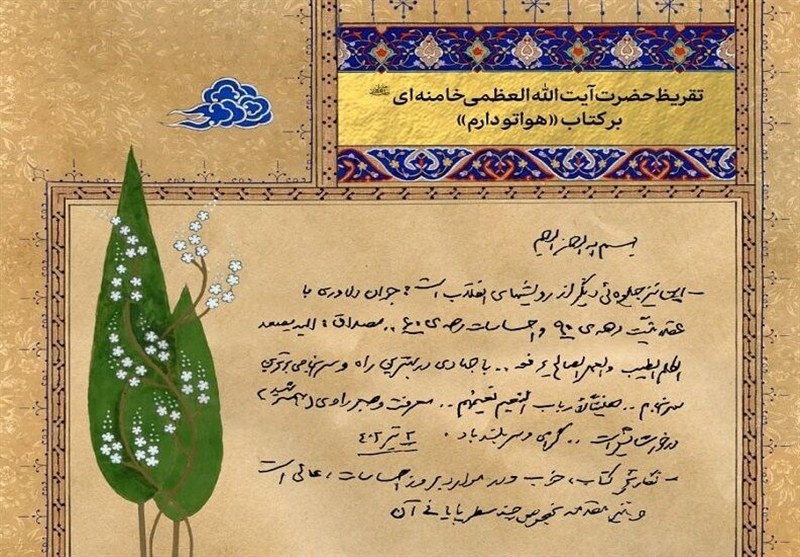 تقریظ حضرت آیت الله العظمی خامنه‌ای
بر کتاب «هواتو دارم»
بسم الله الرحمن الرحیم
- این نیز جلوه‌ئی دیگر از رویشهای انقلاب است: جوان دلاوری با
عقلانیّت دهه‌ی ۹۰ و احساسات دهه‌ی ۶۰.. مصداق: الیه یصعد
الکلم الطیب والعمل الصالح یرفعه.. با جهادی در بهترین راه و سرنوشتی
.. هنیئاً لأرباب النعیم نعیمهم.. معرفت و صبر راوی (همسر شهید)
درخور ستایش است.. گرامی و سربلند باد. ۳ تیر ۴۰۲
- نگارش کتاب، خوب و در موارد بروز احساسات، عالی است
و نیز مقدمه بخصوص چند سطر پایانی آن